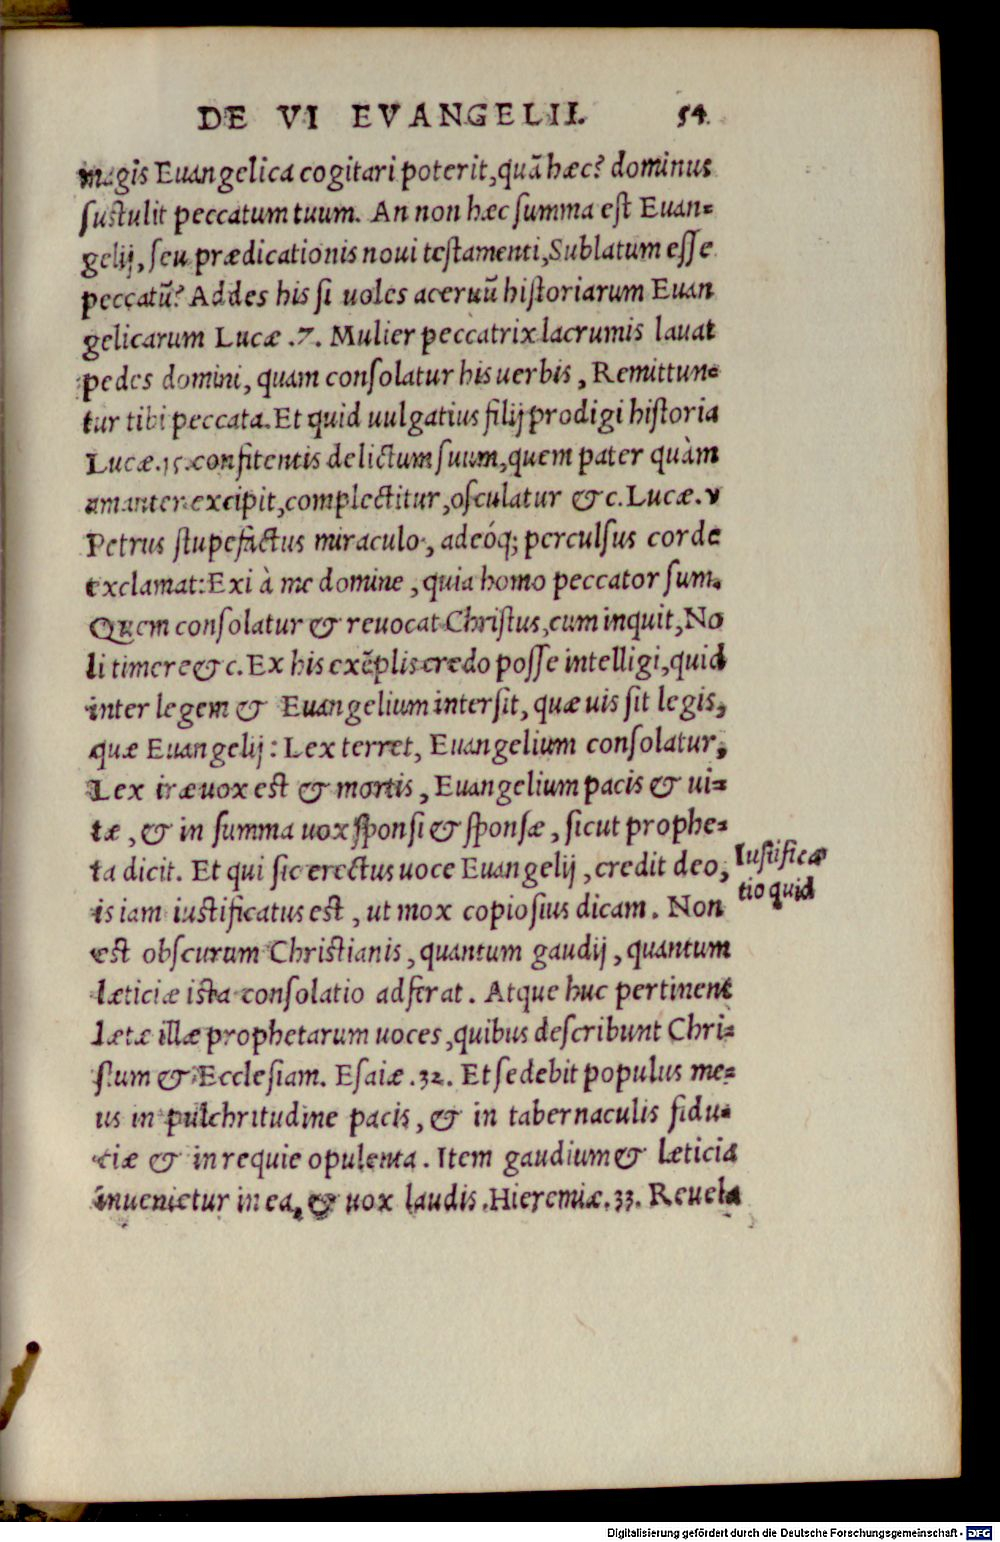 DE VI EVANGELII. 54.
magis Euangelica cogitari poterit, quā hæc? dominus
sustulit peccatum tuum. An non hæc summa est Euan=
gelij, seu prædicationis noui testamenti, Sublatum esse
peccatū? Addes his si uoles aceruū historiarum Euan
gelicarum Lucæ .7. Mulier peccatrix lacrumis lauat
pedes domini, quam consolatur his uerbis, Remittun=
tur tibi peccata. Et quid uulgatius filij prodigi historia
Lucæ. 15. confitentis delictum suum, quem pater quàm
amanter excipit, complectitur, osculatur & c. Lucæ. v
Petrus stupefactus miraculo, adeóq; perculsus corde
exclamat: Exi à me domine, quia homo peccator sum.
Quem consolatur & reuocat Christus, cum inquit, No
li timere & c. Ex his exēplis credo posse intelligi, quid
inter legem & Euangelium intersit, quæ uis sit legis,
quæ Euangelij: Lex terret, Euangelium consolatur,
Lex iræ uox est & mortis, Euangelium pacis & ui=
tæ, & in summa uox sponsi & sponsæ, sicut prophe=
ta dicit. Et qui sic erectus uoce Euangelij, credit deo,
is iam iustificatus est, ut mox copiosius dicam. Non
est obscurum Christianis, quantum gaudij, quantum
læticiæ ista consolatio adferat. Atque huc pertinent
lætæ illæ prophetarum uoces, quibus describunt Chri=
stum & Ecclesiam. Esaiæ .32. Et sedebit populus me=
us in pulchritudine pacis, & in tabernaculis fidu=
tiæ & in requie opulenta. Item gaudium & læticia
inuenietur in ea, & uox laudis. Hieremiæ. 33. Reuela
Iustifica
tio quid
Digitalisierung gefördert durch die Deutsche Forschungsgemeinschaft - DFG